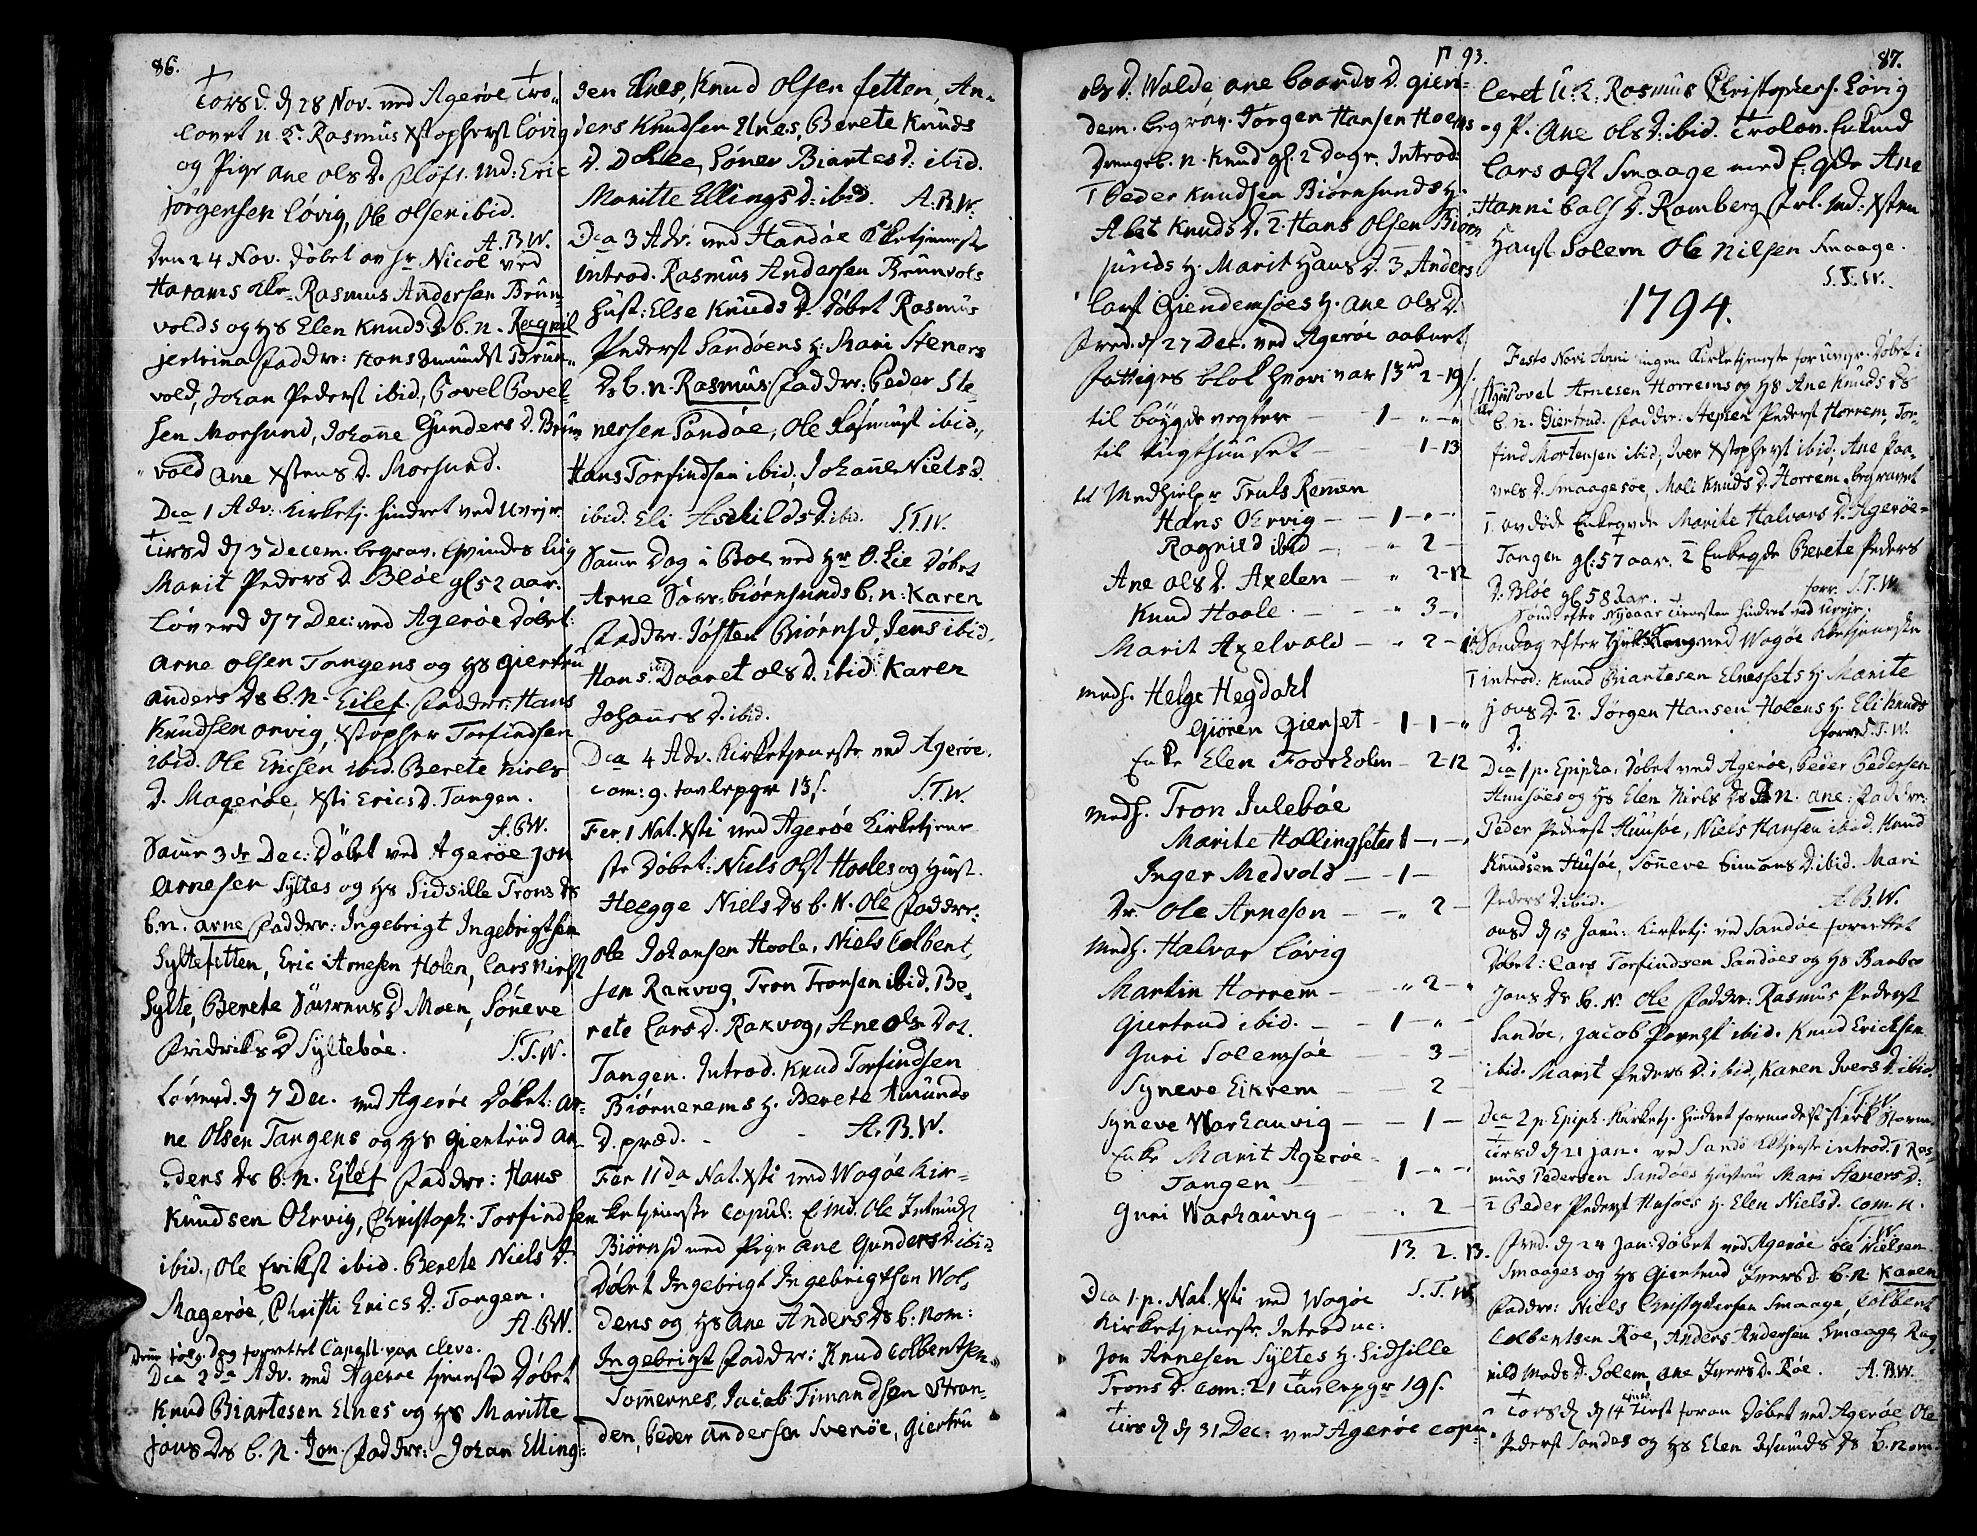 86.
Torsd. d 28 Nov. ved Agerøe Tro-
lovet u. k. Rasmus Xstophersl Løvig
og Pige Ane Ols D. Cav. Md: Eric
Jørgensen Løvig, Ole Olsen ibid.
A.B.W.
Den 24 Nov. Døbet av Hr Nicol ved
Harams Rasmus Andersen Brun-
volds og Hs Elen Knuds D. b. n. Ragnil
Faddre: Hans Amundsl Brun-
vold, Johan Pedersl ibid, Povel Povel-
sen Morsund, Johane Gunders D. Brun-
vold Ane Xstens D. Morsund.
Dca 1 Adv: Kirketj. hindret ved Uvejr.
Tirsd d 3 Decem. begrav.
Marit Peders D. Bløe gl 52 aar.
Løverd d 7 Dec: ved Agerøe Døbet:
Arne Olsen Tangens og Hs Giertru
Anders Ds b. n. Eilef. Faddre: Hans
Knudsen Orvig, Xstopher Torfindsen
ibid. Ole Ericsen ibid. Berete Niels
D. Magerøe, Xsti Erics D. Tangen.
A.B.W.
Dec: Døbet ved Agerøe Jon
Arnesen Syltes og Hs Sidsille Trons Ds
b. n. Arne Faddre: Ingebrigt Ingebrigtsen
Syltesetten, Eric Arnesen Holen, Lars Nielsl
Sylte, Berete D Moen, Sønneve
Fridriks D Syltebøe. S.T.W.
Løverd. d 7 Dec. ved Agerøe Døbet: Ar-
ne Olsen Tangens og Hs Giertrud An-
ders Ds b. n. Ejlef Faddre: Hans
Knudsen Ohrvig, Christoph: Torfindsen
ibid., Ole Eriksl ibid. Berete Niels D.
Magerøe, Christi Erics D. Tangen.
A.B.W.
forrettet Capell: van Cleve.
Dca 2da Adv. ved Agerøe tjeneste Døbet
Knud Biartesen Elnes og Hs Maritte
Jons Ds b. n. Jon Faddre: Johan Elling-
sen Elnes, Knud Olsen Setten, An-
ders Knudsen Elnes, Berete Knuds
D. Biartes D: ibid.
Maritte Ellings D: ibid. A.B.W.
Dca 3 Adv. ved Sandøe Kirketjeneste
introd. Rasmus Andersen Brunvols
Hust: Else Knuds D. Døbet Rasmus
Pedersl Sandøens H: Mari Steners
Ds b. n. Rasmus Faddre: Peder Ste-
nersen Sandøe, Ole Rasmusl ibid.,
Hans Torfindsen ibid, Johane Niels D.
ibid. Eli Aschilds D. ibid. S.T.W.
Dag i Boe ved Hr O. Lie Døbet
Arne Biørnsunds b. n: Karen
Faddre. Jøsten Biørnsd, Jens ibid.
Hans ibid Daaret Ols D. ibid Karen
Johannes D. ibid.
Dca 4 Adv. Kirketjeneste ved Agerøe.
com: 9. tavlepge 13 s. S.T.W.
Fer. 1 Nat. Xsti ved Agerøe Kirketjene-
ste Døbet: Niels Olsl Hooles og Hust.
Niels Ds b. N. Ole Faddre:
Ole Johansen Hoole, Niels Colbent-
sen Rakvog, Tron Tronsen ibid. Be-
rete Lars D. Rakvog, Ane Ols Dot.
Tangen. Introd. Knud Torfindsen
Biørnerems H. Berete Amunds
D. præd. A.B.W.
Fer 11da Nat. Xsti ved Wogøe Kir-
ketjeneste copul: E. md. Ole
Biørnsd med Pige Ane Gunders D. ibid
Døbet Ingebrigt Ingebrigtsen Wol-
dens og Hs Ane Anders Ds b. nom:
Ingebrigt Faddre: Knud Colbentsen
Sommernes, Jacob Timandsen Stran-
den, Peder Andersen Sverøe, Giertru
1793.
Ols D. Wolde, Ane Baards D. Gien-
dem. begrav. Jørgen Hansen Hoens
Drengeb. n. Knud gl. 2 Dage. Introd:
1 Peder Knudsen Biørnsunds H.
Abet Knuds D. 2. Hans Olsen Biørn
sunds H. Marit Hans D. 3 Anders
Larsl Giendemsøes H. Ane Ols D.
Fred. d 27 Dec. ved Agerøe aabnet
fattiges blok hvori var 13rd 2-19 s.
til bøygdevegter - 1 - " - "
til tugthuuset - 1-13
til Medhielpr Truls Remen
Hans Ohrvig - 1 - " -
Ragnild ibid - " 2 -
Ane Ols D. Axelen - " 2-12
Knud Hoole - " 3 -
Marit Axelvold - " 2 -
medh. Helge Hegdahl
Giøren Gienset - 1 - 1 - "
Enke Elen Foorholm - 2-12
medh. Tron Julebøe
Marite Hollingsetes 1 - " -
Inger Medvold - 1 -
Dr. Ole Arnesen - " 2 -
medh. Halvar Løvig
Martin Horrem - " 2 - "
Giertrud ibid. - 1 - " -
Guri Solemsøe - 3 -
Syneve Eikrem - 2 -
Syneve Warhauvig - 1 -
Enke Marit Agerøe-
Tangen - 1 - " -
Guri Warhauvig - . 2 -
13. 2. 13.
S.T.W.
Dca 1 p. Nat. Xsti ved Wogøe
Kirketjeneste. Introduc:
Jon Arnesen Syltes H. Sidsille
Trons D. Com: 21 Tavlepge 19 s.
Tirsd d 31 Dec: ved Agerøe copu-
87.
leret U. K. Rasmus Christophers. Løvig
og P. Ane Ols D: ibid. Trolov. Enkmd
Lars Olsl Smaage med E: qde Ane
Hannibals D. Ramberg Md: Xsten
Hansl Solem Ole Nilsen Smaage.
S.T.W.
1794.
Festo Novi Anni ingen Kirketjeneste for uvejr. Døbet i
Povel Arnesen Horrems og Hs Ane Knuds Ds
b. n. Giertrud. Faddre: Stephen Pedersl Horrem, Tor-
find Mortensen ibid, Iver Xstophersl ibid, Ane Paa-
vels D. Smaagesøe, Mali Knuds D. Horrem. begravet
1. avdøde Enkeqvde Marite Halvars D. Agerøe-
Tangen gl: 57 aar. 2 Enkeqde Berete Peders
D. Bløe gl 58 aar. forr. S.T.W.
Sønd efter Nydaar tienesten hindret ved uvejr.
Søndag efter ved Wogøe Kirketjeneste
1 introd: Knud Biartesen Elnessets H Marite
Jons D. 2. Jørgen Hansen Holens H. Eli Knuds
D. forr. S.T.W.
Dca 1 p. Epipha. Døbet ved Agerøe, Peder Pedersen
Huusøes og Hs Elen Niels Ds B. n. Ane. Faddre:
Peder Pedersl Huusøe, Niels Hansen ibid. Knud
Knudsen Husøe, Sønneve Simons D. ibid. Mari
Peders D. ibid. A.B.W.
Onsd d 15 Janu: Kirketj: ved Sandøe forrettet
Døbet: Lars Torfindsen Sandøes og Hs Barbro
Jons Ds b. n. Ole Faddre: Rasmus Pedersl
Sandøe, Jacob Povelsl ibid. Knud Ericksen
ibid. Marit Peders D. ibid, Karen Ivers D. ibid.
S.T.W.
Dca 2 p. Epiph. Kirketj. hindret formedelst sterk Storm.
Tirsd d 21 Jan. ved Sandø introd. 1 Ras-
mus Pedersen Sandøes Hustrue Mari Steners D:
2 Peder Pedersl Husøes H. Elen Niels D. com. n.
S.T.W.
Fred. d 24 Jan: Døbet ved Agerøe Ole Nielsen
Smaages og Hs Giertrud Ivers D. b. n. Karen
Faddre: Niels Christophersen Smaage, Colbent
Colbentsen Røe, Anders Andersen Smaage, Rag-
nild Mads D. Solem, Ane Ivers D. Røe. A.B.W.
Torsd d 14 foran Døbet ved Agerøe Ole
Pedersl Sandøs og Hs Elen Asmunds Ds b. nom.